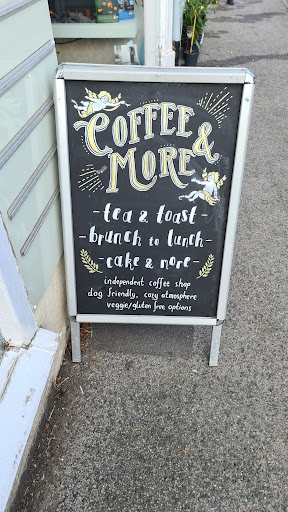 COFFEE &
MORE
- tea & toast -
- brunch to lunch -
- cake & more -
independent coffee shop
dog friendly, cozy atmosphere
veggie/gluten free options